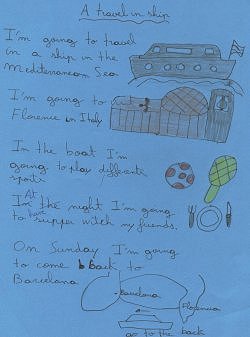 A travel in ship
I'm going to travel
in a ship in the
Mediterranean Sea.
I'm going to
Florence in Italy
In the boat I'm
going to play differents
sports
At the night I'm going
to have supper witch my friends.
On Sunday I'm going
to come back to
Barcelona
Barcelona
Florencia
go to the back